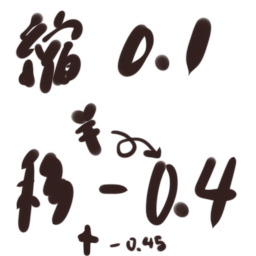 縮 0.1
羊
移 -0.4
+ -0.45